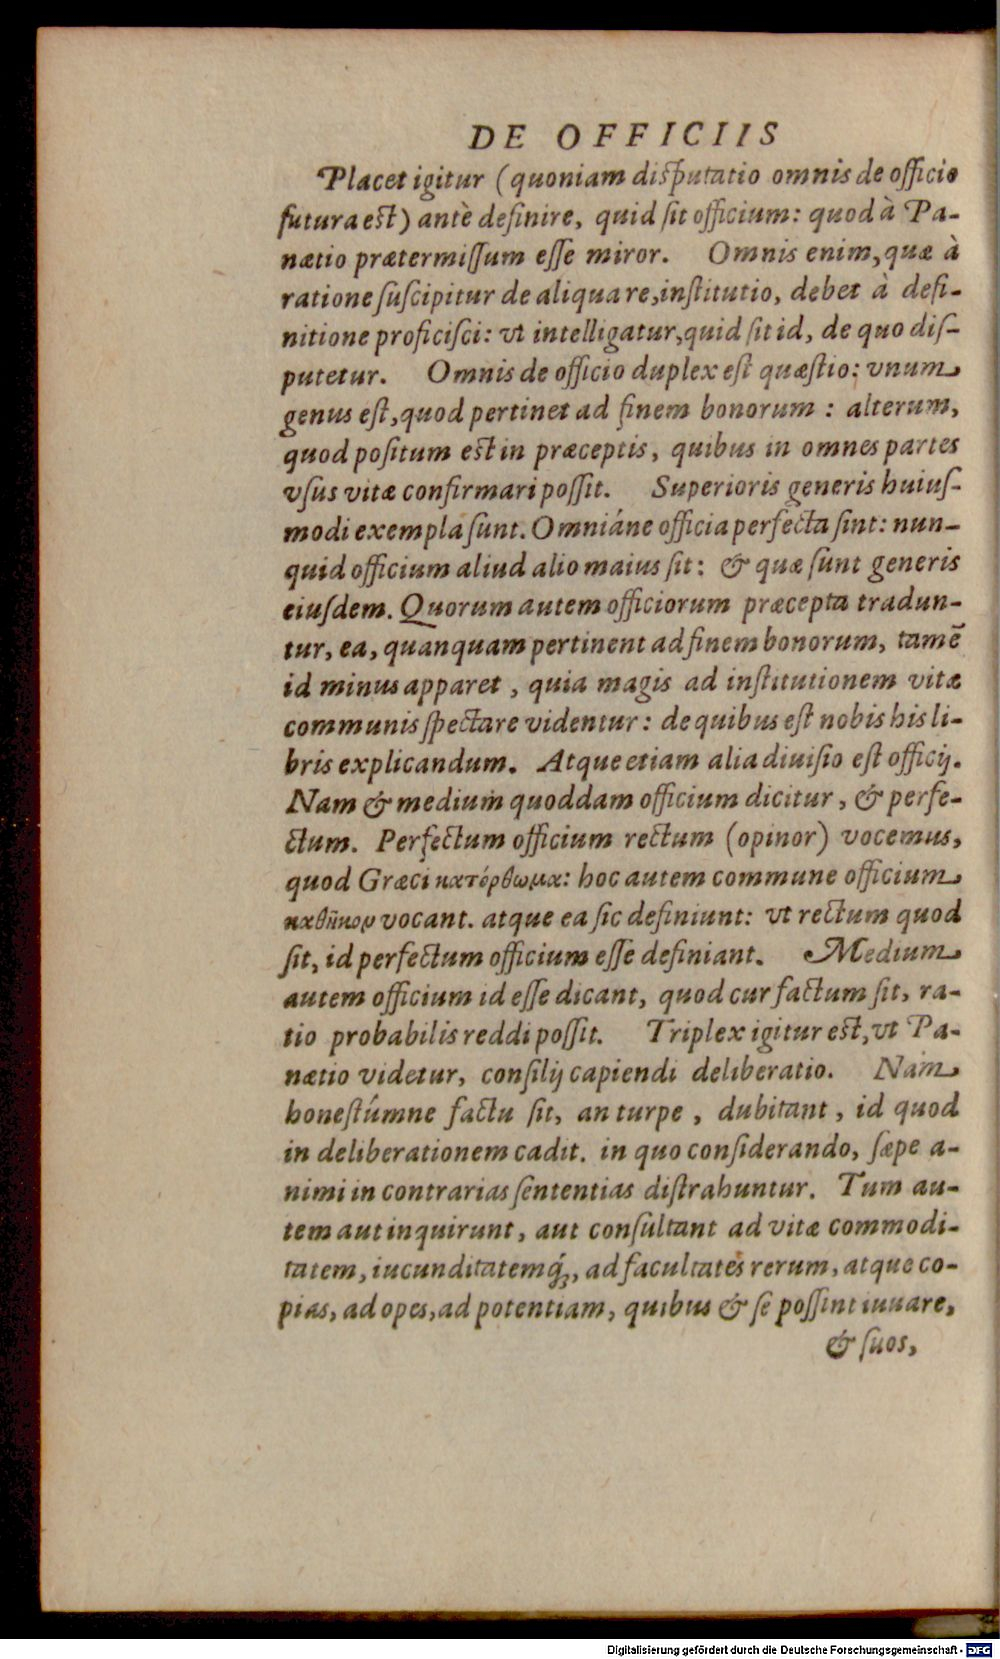 DE OFFICIIS
Placet igitur (quoniam disputatio omnis de officio
futura est) antè definire, quid ſit officium: quod à Pa-
nætio prætermiſſum eſſe miror. Omnis enim, quæ à
ratione ſuſcipitur de aliqua re, inſtitutio, debet à defi-
nitione proficiſci: vt intelligatur, quid ſit id, de quo diſ-
putetur. Omnis de officio duplex eſt quæſtio: vnum
genus eſt, quod pertinet ad finem bonorum : alterum,
quod poſitum est in præceptis, quibus in omnes partes
vſus vitæ confirmari poſſit. Superioris generis huiuſ-
modi exempla ſunt. Omniáne officia perfecta ſint: nun-
quid officium aliud alio maius ſit: & quæ ſunt generis
eiuſdem. Quorum autem officiorum præcepta tradun-
tur, ea, quanquam pertinent ad finem bonorum, tamē
id minus apparet, quia magis ad inſtitutionem vitæ
communis ſpectare videntur: de quibus eſt nobis his li-
bris explicandum. Atque etiam alia diuiſio eſt officij.
Nam & medium quoddam officium dicitur, & perfe-
ctum. Perfectum officium rectum (opinor) vocemus,
quod Græci κατόρθωμα: hoc autem commune officium
καθῆκον vocant. atque ea ſic definiunt: vt rectum quod
ſit, id perfectum officium eſſe definiant. Medium
autem officium id eſſe dicant, quod cur factum ſit, ra-
tio probabilis reddi poſſit. Triplex igitur est, vt Pa-
nætio videtur, conſilij capiendi deliberatio. Nam
honeſtúmne factu ſit, an turpe, dubitant, id quod
in deliberationem cadit. in quo conſiderando, ſæpe a-
nimi in contrarias ſententias diſtrahuntur. Tum au-
tem aut inquirunt, aut conſultant ad vitæ commodi-
tatem, iucunditatemq́;, ad facultates rerum, atque co-
pias, ad opes, ad potentiam, quibus & ſe poſſint iuuare,
& ſuos,
Digitalisierung gefördert durch die Deutsche Forschungsgemeinschaft - DFG